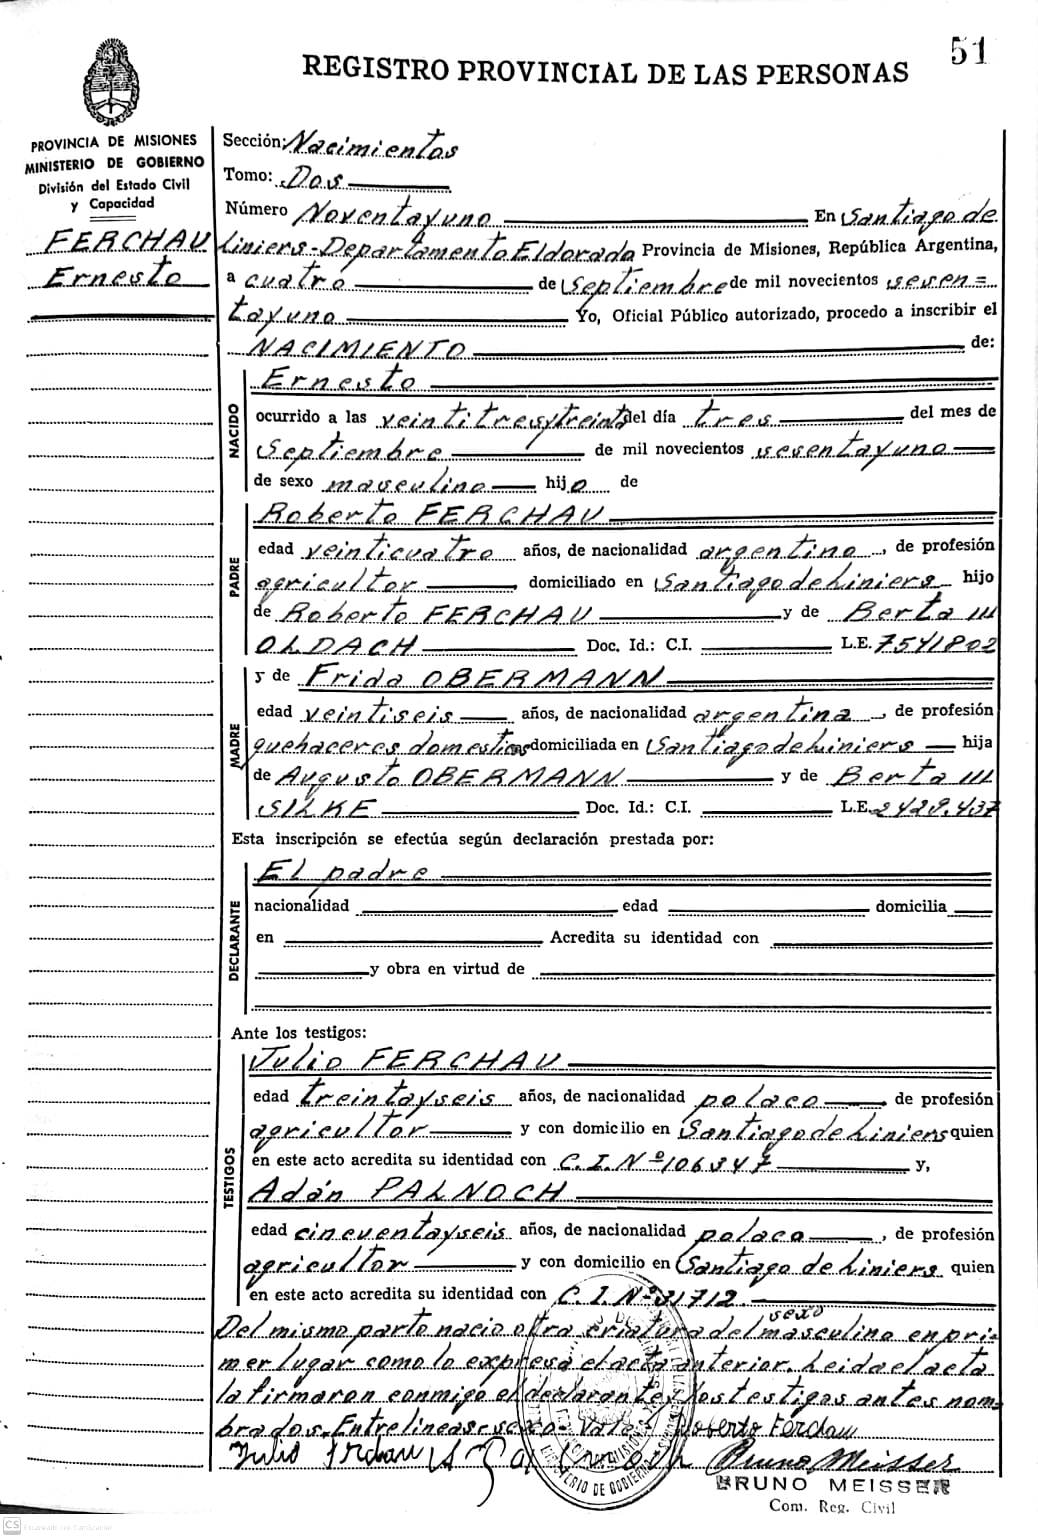 51
REGISTRO PROVINCIAL DE LAS PERSONAS
PROVINCIA DE MISIONES
MINISTERIO DE GOBIERNO
División del Estado Civil
y Capacidad
FERCHAU
Ernesto
Sección: Nacimientos
Tomo: Dos
Número Noventayuno En Santiago de
Liniers-Departamento Eldorado Provincia de Misiones, República Argentina,
a cuatro de Septiembre de mil novecientos sesen=
tayuno Yo, Oficial Público autorizado, procedo a inscribir el
NACIMIENTO de:
NACIDO
Ernesto
ocurrido a las veintitresytreinta del día tres del mes de
Septiembre de mil novecientos sesentayuno
de sexo masculino hijo de
PADRE
Roberto FERCHAU
edad veinticuatro años, de nacionalidad argentino, de profesión
agricultor domiciliado en Santiago de Liniers hijo
de Roberto FERCHAU y de Berta
OLDACH Doc. Id.: C.I. L.E. 7541802
MADRE
y de Frida OBERMANN
edad veintiseis años, de nacionalidad argentina, de profesión
quehaceres domesticos domiciliada en Santiago de Liniers hija
de Augusto OBERMANN y de Berta
SILKE Doc. Id.: C.I. L.E. 2429.437
Esta inscripción se efectúa según declaración prestada por:
DECLARANTE
El padre
nacionalidad edad domicilia
en Acredita su identidad con
y obra en virtud de
Ante los testigos:
TESTIGOS
Julio FERCHAU
edad treintayseis años, de nacionalidad polaco de profesión
agricultor y con domicilio en Santiago de Liniers quien
en este acto acredita su identidad con C.I.Nº106347 y,
Adán PALNOCH
edad cincuentayseis años, de nacionalidad polaco, de profesión
agricultor y con domicilio en Santiago de Liniers quien
en este acto acredita su identidad con C.I.Nº31712
sexo
Del mismo parto nacio otra criatura del masculino en pri-
mer lugar como lo expresa el acta anterior. Leida el acta
la firmaron conmigo el declarante y los testigos antes nom-
brados. Entre lineas: sexo-Vale. Roberto Ferchau
Julio Ferchau Bruno Meisser
MINISTERIO DE GOBIERNO
BRUNO MEISSER
Com. Reg. Civil
CS